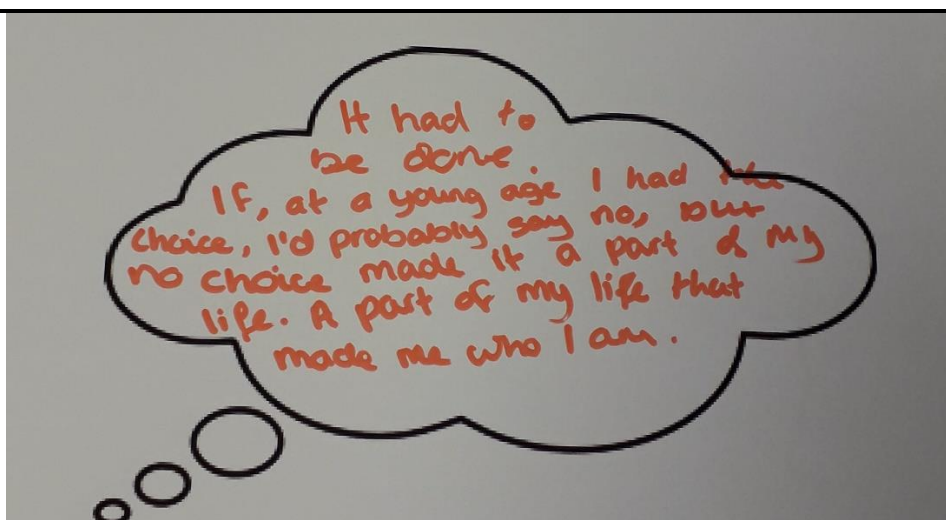 It had to
be done.
If, at a young age I had the
choice, I'd probably say no, but
no choice made it a part of my
life. A part of my life that
made me who I am.